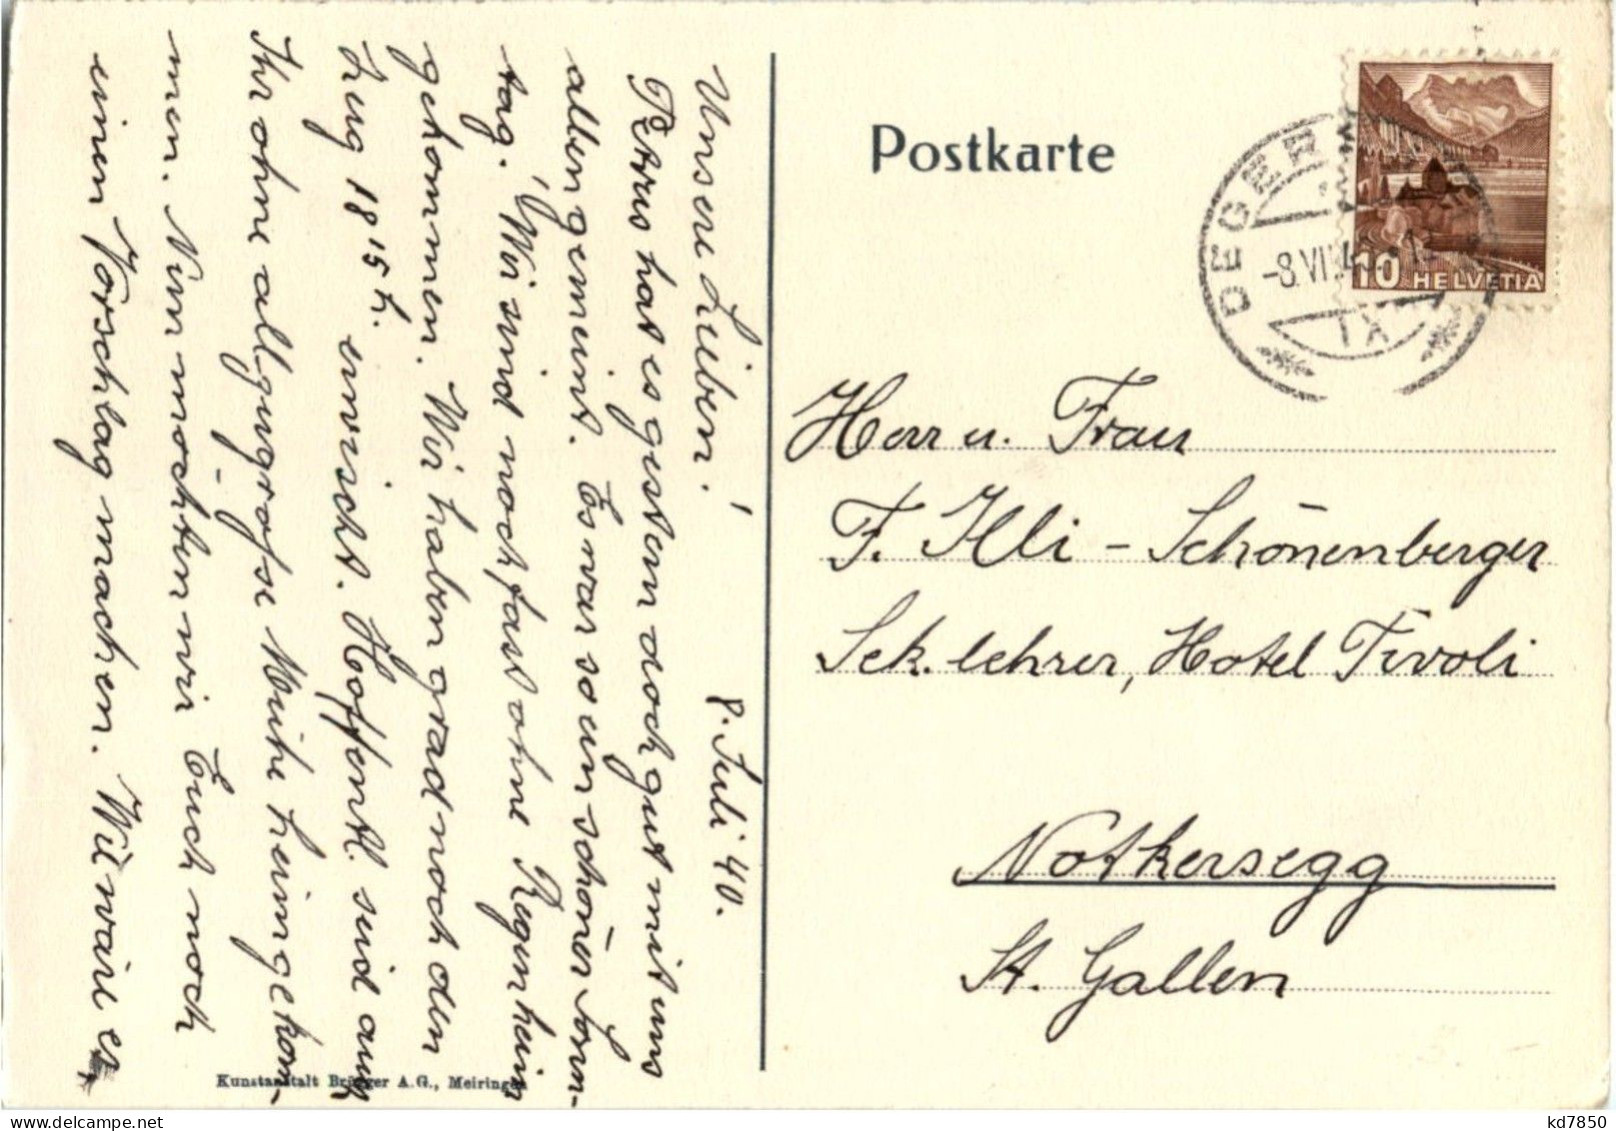 Unsere Lieben!
8. Juli 40.
Petrus hat es gestern doch gut mit uns
allen gemeint. Es war so ein schöner Sonn-
tag. Wir sind noch fast ohne Regen heim
gekommen. Wir haben grad noch den
Zug 18 15 h. erwischt. Hoffentl. seid auch
Ihr ohne allzugrosse Mühe heimgekom-
men. Nun möchten wir Euch noch
einen Vorschlag machen. Wie wäre es,
Kunstanstalt Brügger A.G., Meiringen
Postkarte
DEGER
-8.VII.40
IX
10 HELVETIA
Herr u. Frau
F. Illi - Schönenberger
Sek. lehrer, Hotel Tivoli
Notkersegg
St. Gallen
kd7850